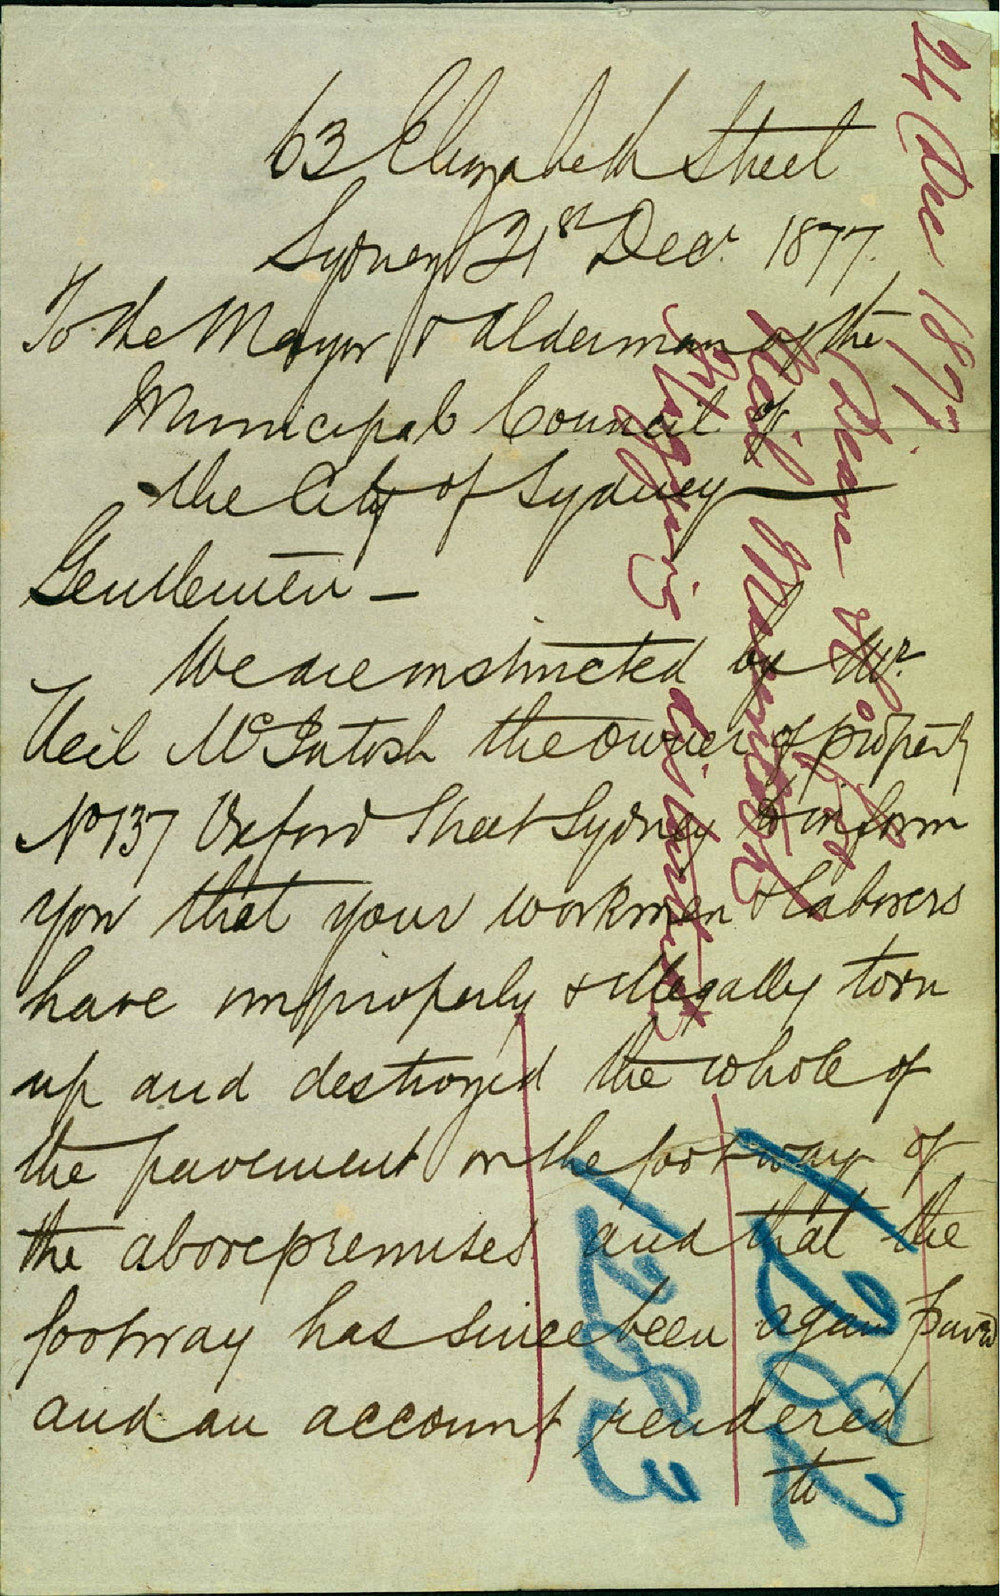 63 Elizabeth Street
Sydney 21st Decr. 1877.
To the Mayor & Alderman of the
Municipal Council of
the City of Sydney
Gentlemen —
We are instructed by Mr.
Neil McIntosh the owner of property
No 137 Oxford Street Sydney to inform
you that your workmen & laborers
have improperly & illegally torn
up and destroyed the whole of
the pavement on the footway of
the above premises and that the
footway has since been again paved
and an account rendered
to
24 Dec 1877
Neil McIntosh
1282
1283